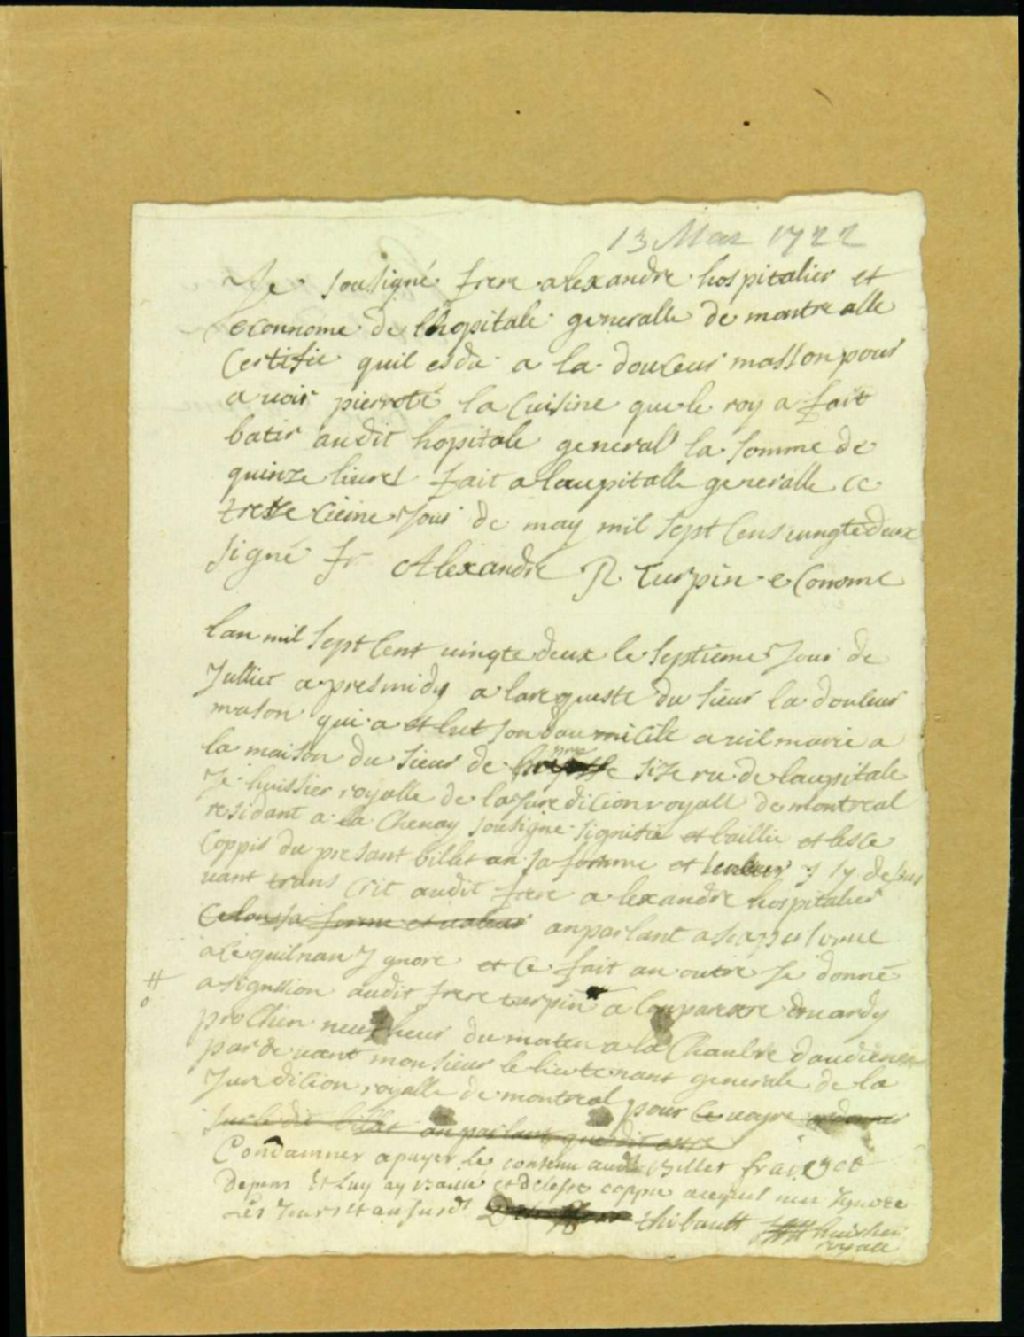 13 Mai 1722
Je sousigné frere alexandre hospitalier et
econnome de lhopitale generalle de montrealle
Certifie quil esdu a la douceur masson pour
a uoir pierroté la Cuisine que le roy a fait
batir audit hopitale general la somme de
quinze liures fait a laupitalle generalle ce
tresze jour de may mil sept Cens uingtedeux
signé fr Alexandre R turpin econome
lan mil sept Cent uingte deux le septieme Jour de
Julliet apresmidy a larequeste du sieur la douleur
mason qui a et lut son doumicille a uillmarie a
la maison du sieur de size ru de laupitale
Je huissier royalle de la Juredicion royall de montreal
residant a la Chenay sousigne signifié et baillié et lesce
Coppis du presant billet an sa forme et y sy desus
uant trans crit audit frere alexandre hospitalier
anparlant a sa personne
ace quil nan Jgnore et ce fait an outre Je donné
#
asignssion audit frere turpin a conparestre mardy
prochin neuf heur du maten a la Chanbre daudience
par de uant monsieur le lieutenant generale de la
Juredicion royalle de montreal pour ce uoire
sur le dit billet an parlant que dit estre
Condamner apayer le contenu audit billet frais et
depans et luy ay baillé et delesse coppie acequil nen Ignore
les jours et an susdt thibault huissier
royalle